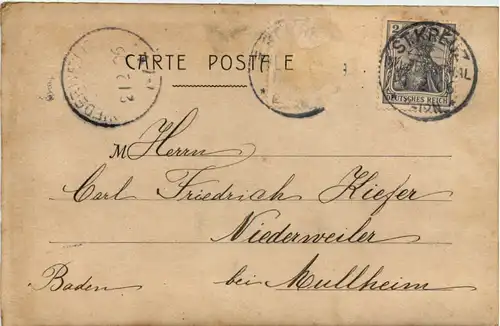 CARTE POSTALE
2
DEUTSCHES REICH
ST. KREUZ
M Herrn
Carl Friedrich Kiefer
Niederweiler
Baden bei Müllheim